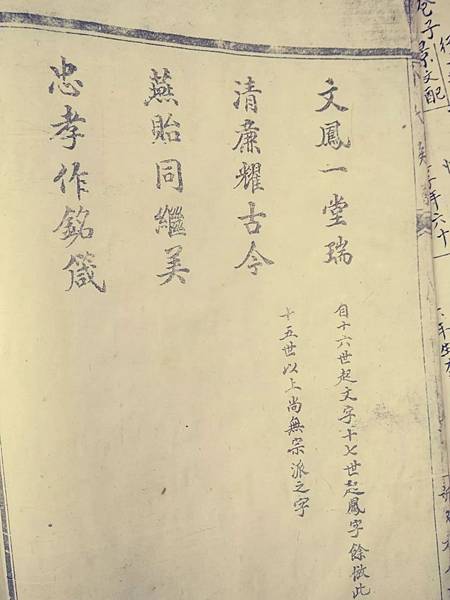 文鳳一堂瑞
自十六世起文字十七世起鳳字餘倣此
十五世以上尚無宗派之字
清廉耀古今
燕貽同繼美
忠孝作銘箴